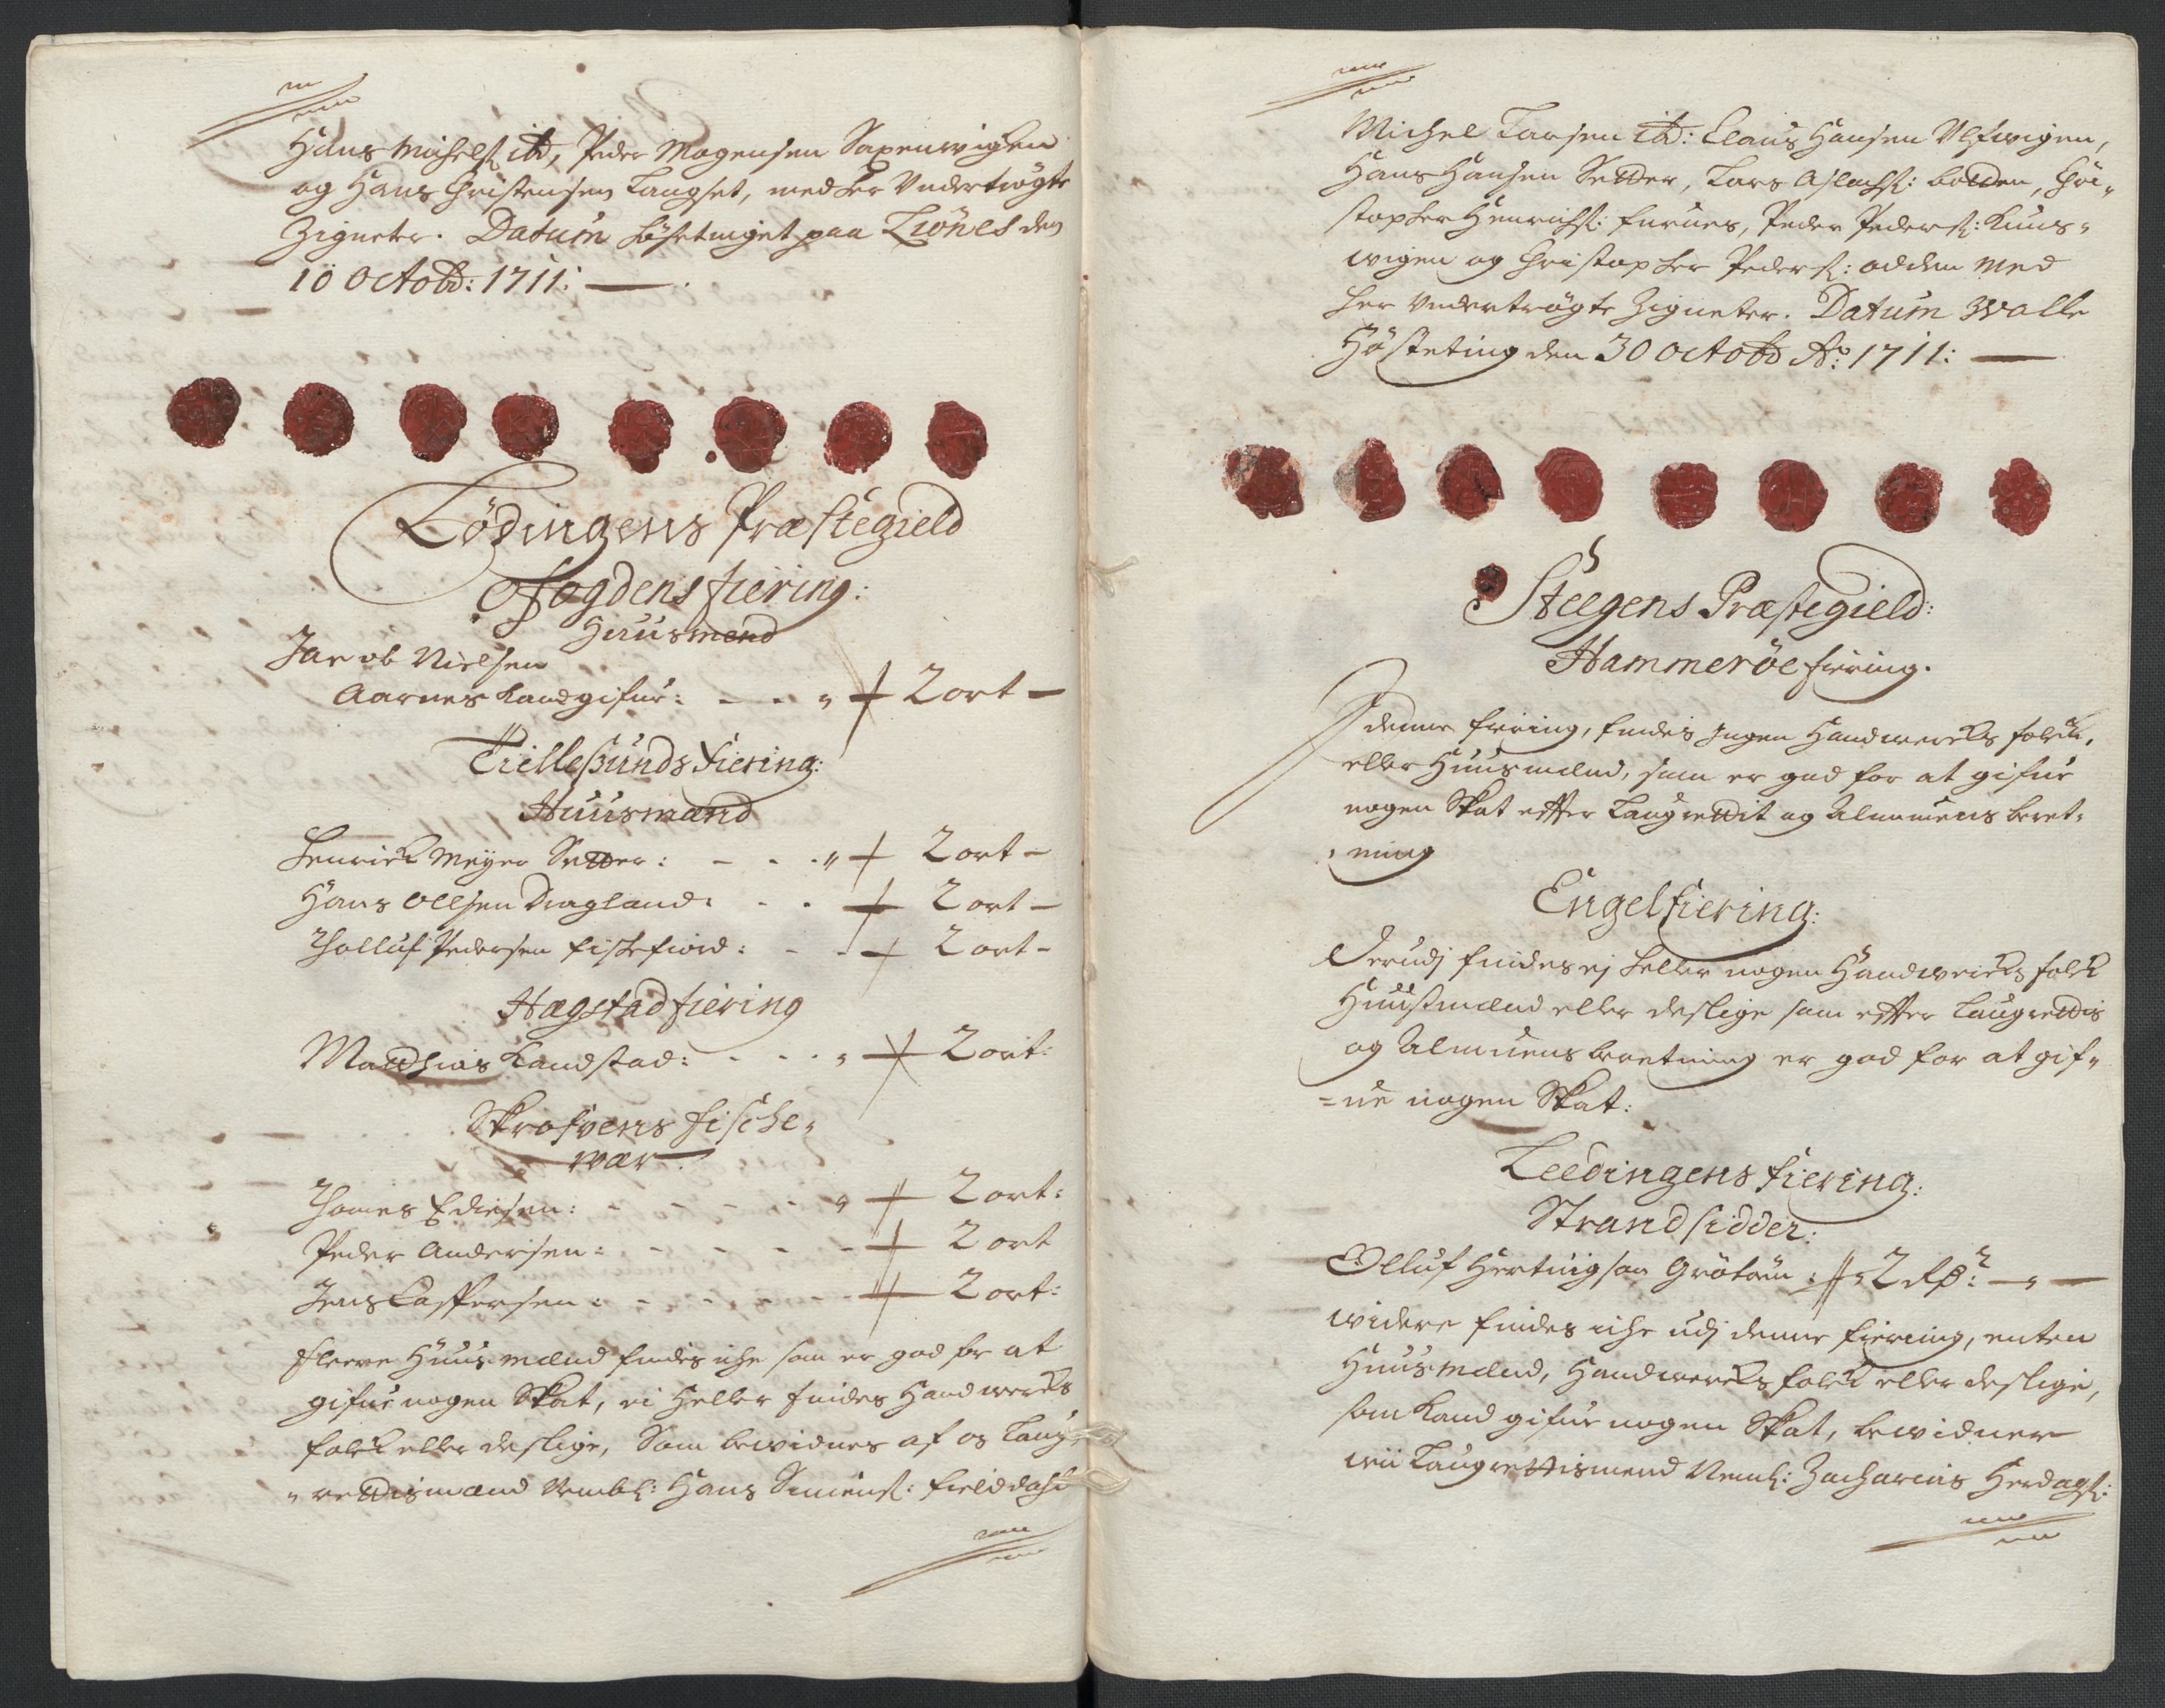 Hans Michels: ibd, Peder Mogensen Saxenwigen
og Hans Christensen Langset, med her Undertrögte
Zigneter. Datum Höstetinget paa Liönes den
10 Octobr: 1711:
Lödingens Præstegield
Ofogdens fiering:
Huusmend
Jacob Nielsen
Aarnes kand gifue: 2 ort
Tiellesunds Fiering:
Huusmænd
Henrick Meyer Setter: 2 ort
Hans Ollsen Dragland: 2 ort
Tolluf Pedersen Fiskefiord: 2 ort
Hægstad fiering
Matthias Kandstad: 2 ort:
Skrofvens fische-
wær:
Thomes Ediesen: 2 ort:
Peder Andersen: 2 ort
Jens Casspersen: 2 ort:
Fleere Huusmænd findes iche som er god for at
gifue nogen Skat, ei heller findes Handwercks
folck eller deslige, Som bewidnes af os Laug-
rettismænd Nembl: Hans Simens: Fielddahl
Michel Larsen ibd: Claus Hansen Ulfwigen,
Hans Hansen Setter, Lars Aslachs: Botten, Chri-
stopher Henrichs: Furnes, Peder Peders:
wigen og Christopher Peders: Odden med
her undertrögte Zigneter. Datum Walle
Hösteting den 30 Octobr Ao: 1711:
Steegens Præstegield:
Hammeröe fiering.
J denne fiering, findes Ingen Handwercks folck,
eller Huusmænd, som er god for at gifue
nogen Skat effter Laugrettit og Almuens beret-
ning
Engelfiering:
Derudj findes ej heller nogen Handwercks folck
Huusmænd eller deslige som effter Laugrettis
og Almuens beretning er god for at gif-
ue nogen Skat:
Leedingens fiering:
Strandsidder:
Olluf Hertuigsen Grötöen: 2 Rdr:
widere findes iche udj denne fiering, enten
Huusmænd, Handwercks folck eller deslige,
som kand gifue nogen Skat, bewidner
wii Laugrettismend Neml: Zacharias Herdags: